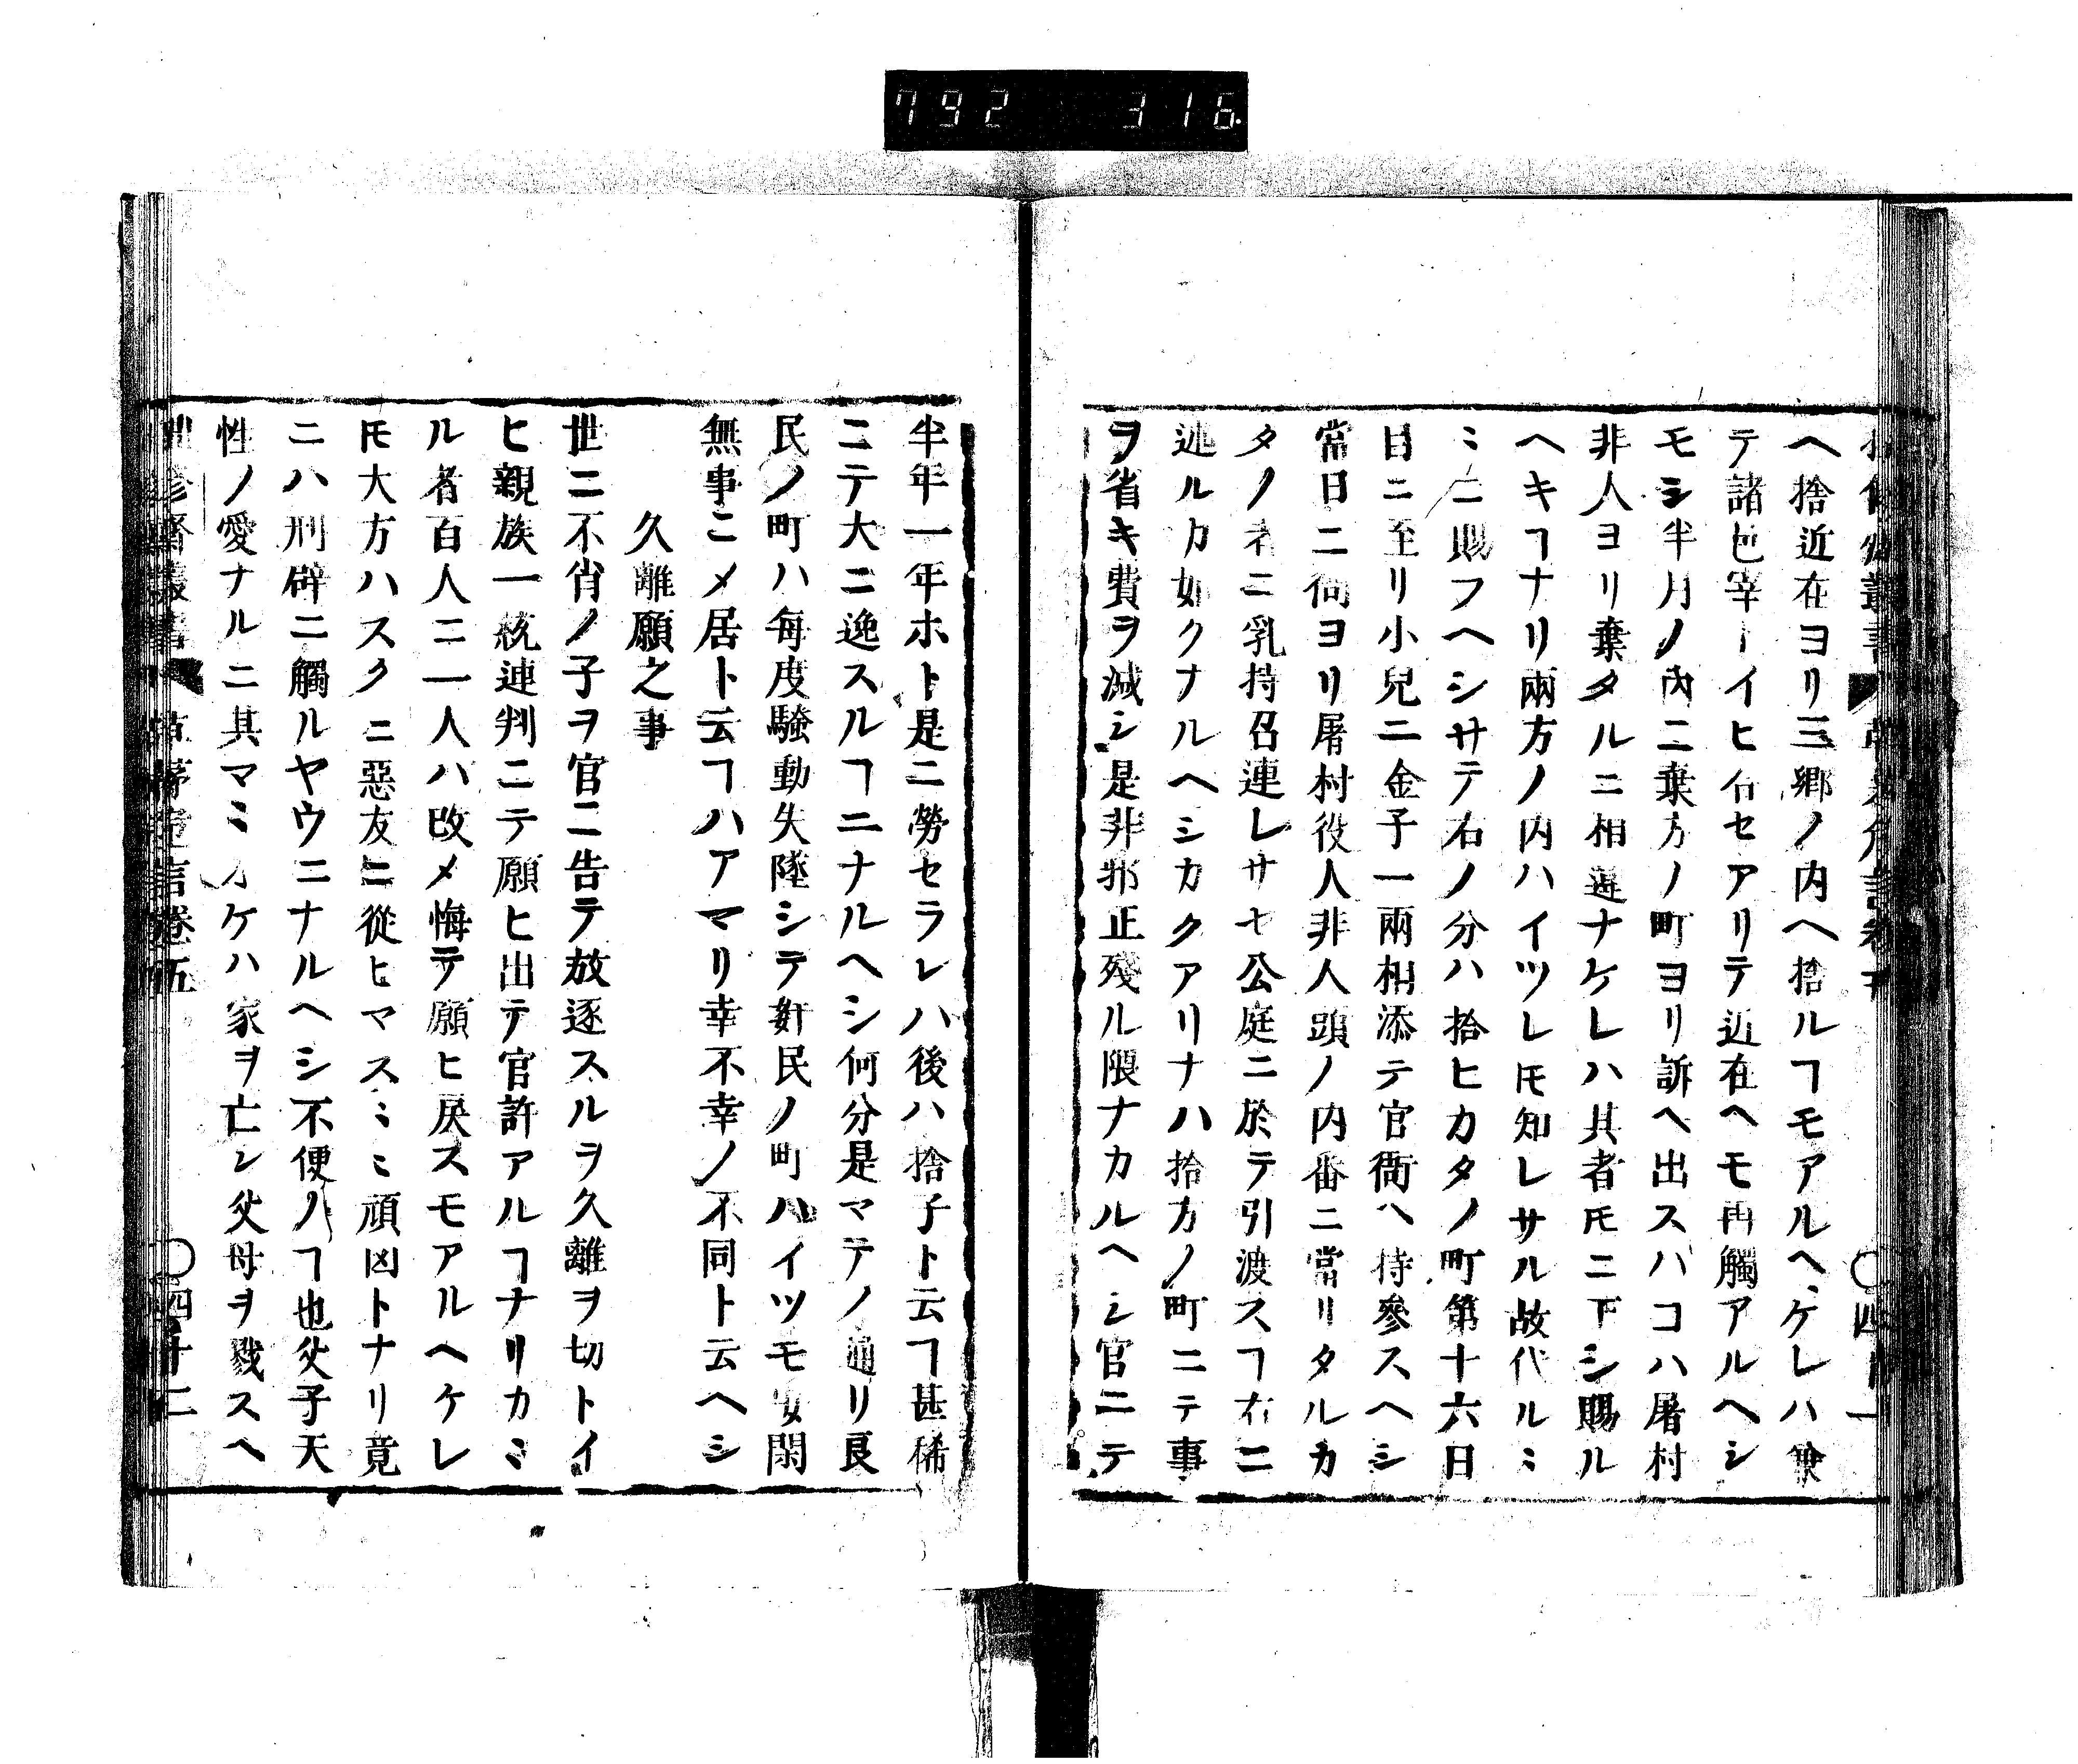 792 316
ヘ捨近在ヨリ三郷ノ内ヘ捨ルヿモアルヘケレハ兼
テ諸邑宰ーイヒ合セアリテ近在ヘモ再觸アルヘシ
モシ半月ノ內ニ棄方ノ町ヨリ訴ヘ出スハコハ屠村
非人ヨリ棄タルニ相違ナケレハ其者𪜈ニ下シ賜ル
ヘキヿナリ兩方ノ内ハイツレ𪜈知レサル故代ルミ
ミニ賜フヘシサテ右ノ分ハ拾ヒカタノ町第十六日
目ニ至リ小兒ニ金子一兩相添テ官衙ヘ持參スヘシ
當日ニ伺ヨリ屠村役人非人頭ノ内番ニ當リタルカ
タノ者ニ乳持召連レサセ公庭ニ於テ引渡スヿ右ニ
述ルカ如クナルヘシカクアリナハ拾方ノ町ニテ事
ヲ省キ費ヲ減シ是非邪正殘ル隈ナカルヘシ官ニテ
半年一年ホト是ニ勞セラレハ後ハ捨子ト云ヿ甚稀
ニテ大ニ逸スルヿニナルヘシ何分是マテノ通リ良
民ノ町ハ毎度騷動失墜シテ奸民ノ町ハイツモ安閑
無事ニメ居ト云ヿハアマリ幸不幸ノ不同ト云ヘシ
久離願之事
世ニ不肖ノ子ヲ官ニ告テ放逐スルヲ久離ヲ切トイ
ヒ親族一統連判ニテ願ヒ出テ官許アルヿナリカミ
ル者百人ニ一人ハ改メ悔テ願ヒ戻スモアルヘケレ
𪜈大方ハスクニ惡友ニ從ヒマスミミ頑凶トナリ竟
ニハ刑辟ニ觸ルヤウニナルヘシ不便ノヿ也父子天
性ノ愛ナルニ其マミオケハ家ヲ亡シ父母ヲ戮スヘ
草茅危言卷五
〇四十二